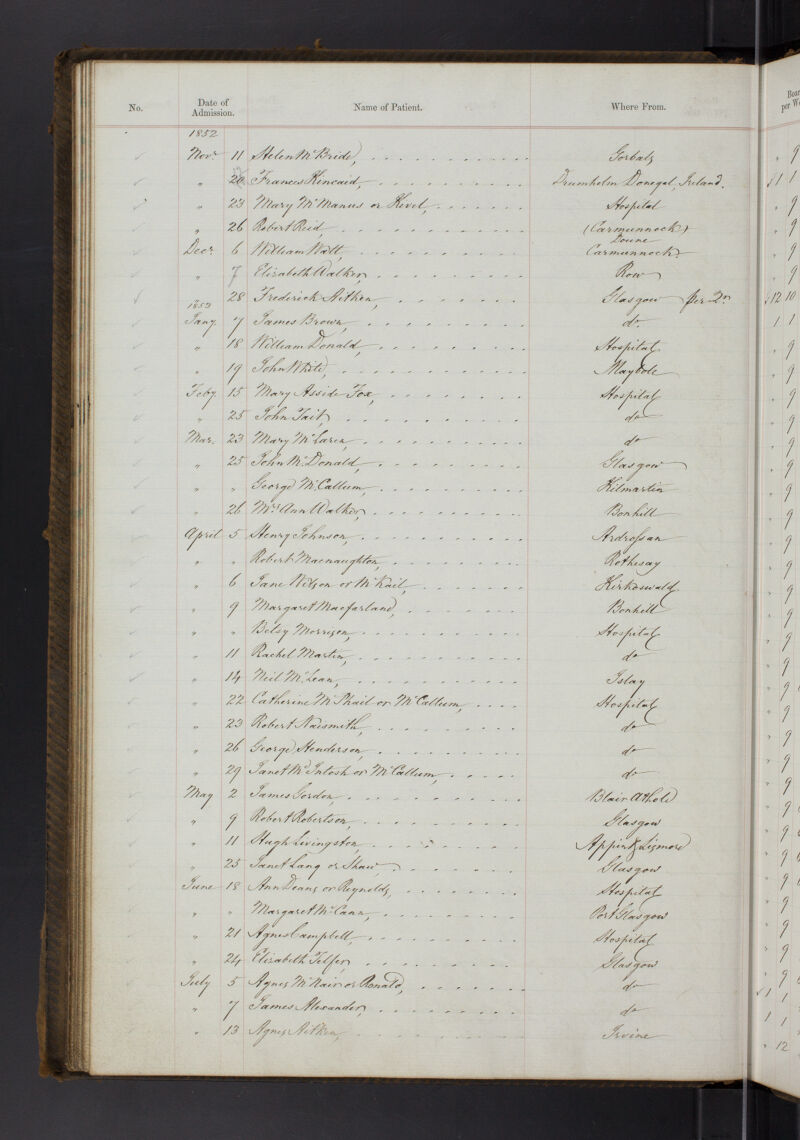 No. Date of Admission. Name of Patient. Where From.
1852
Novr. 11 Helen McBride, Gorbals
" 20 Frances Kincaid, Drumholm Donegal, Ireland.
" 23 Mary McManus or Hospital
" 26 Robert Reid, (Carmunnock)
Doune
Decr. 6 William Watt, Carmunnock
" 7 Elizabeth Walker, Row
" 28 Frederick Aitken, Glasgow per Qr.
1853
Jany. 7 James Brown, do.
" 18 William Donald, Hospital
" 19 John White, Maybole
Feby. 15 Mary Asside Fox, Hospital
" 25 John Tait, do
Mar. 23 Mary McLaren, do
" 25 John McDonald, Glasgow
" " George McCallum, Kilmartin
" 26 Mrs Ann Walker, Bonhill
April 5 Henry Johnson, Ardrossan
" " Robert Macnaughton, Rothesay
" 6 Jane Wilson or McKail, Kirkoswald
" 9 Margaret Macfarland, Bonhill
" " Betsy Morrison, Hospital
" 11 Rachel Martin, do
" 14 Neil McLean, Islay
" 22 Catherine McPhail or McCallum, Hospital
" 23 Robert Naismith, do
" 26 George Henderson, do
" 29 Janet McIntosh or McCallum, do
May 2 James Gordon, Blair Athole
" 9 Robert Robertson, Glasgow
" 11 Hugh Livingston, Appin & Lismore
" 25 Janet Lang or Shaw, Glasgow
June 18 Ann Deans or Reynolds, Hospital
" " Margaret McCann, Port Glasgow
" 21 Agnes Campbell, Hospital
" 24 Elizabeth Telfer, Glasgow
July 5 Agnes McNair or Ronald, do
" 7 James Alexander, do
" 13 Agnes Aitken, Irvine